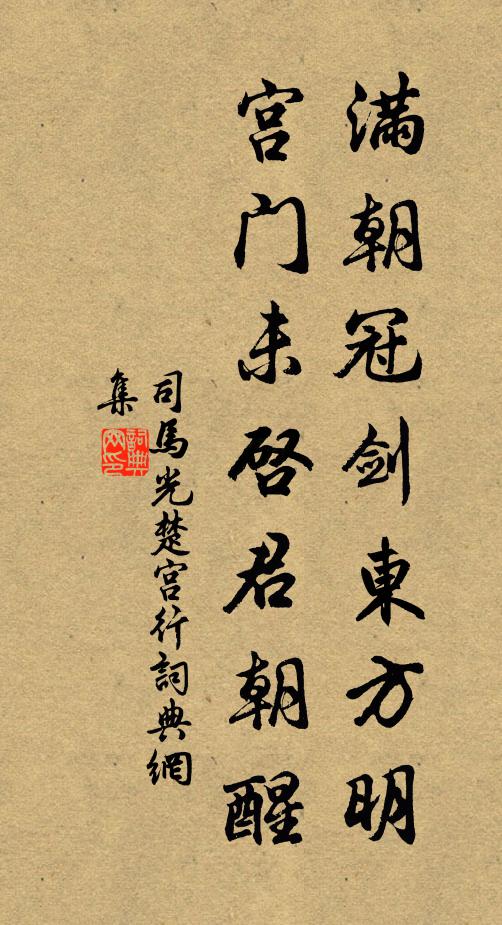 满朝冠剑東方明
宫门未啓君朝醒
司馬光楚宫行詞典網
集
詞典
网印